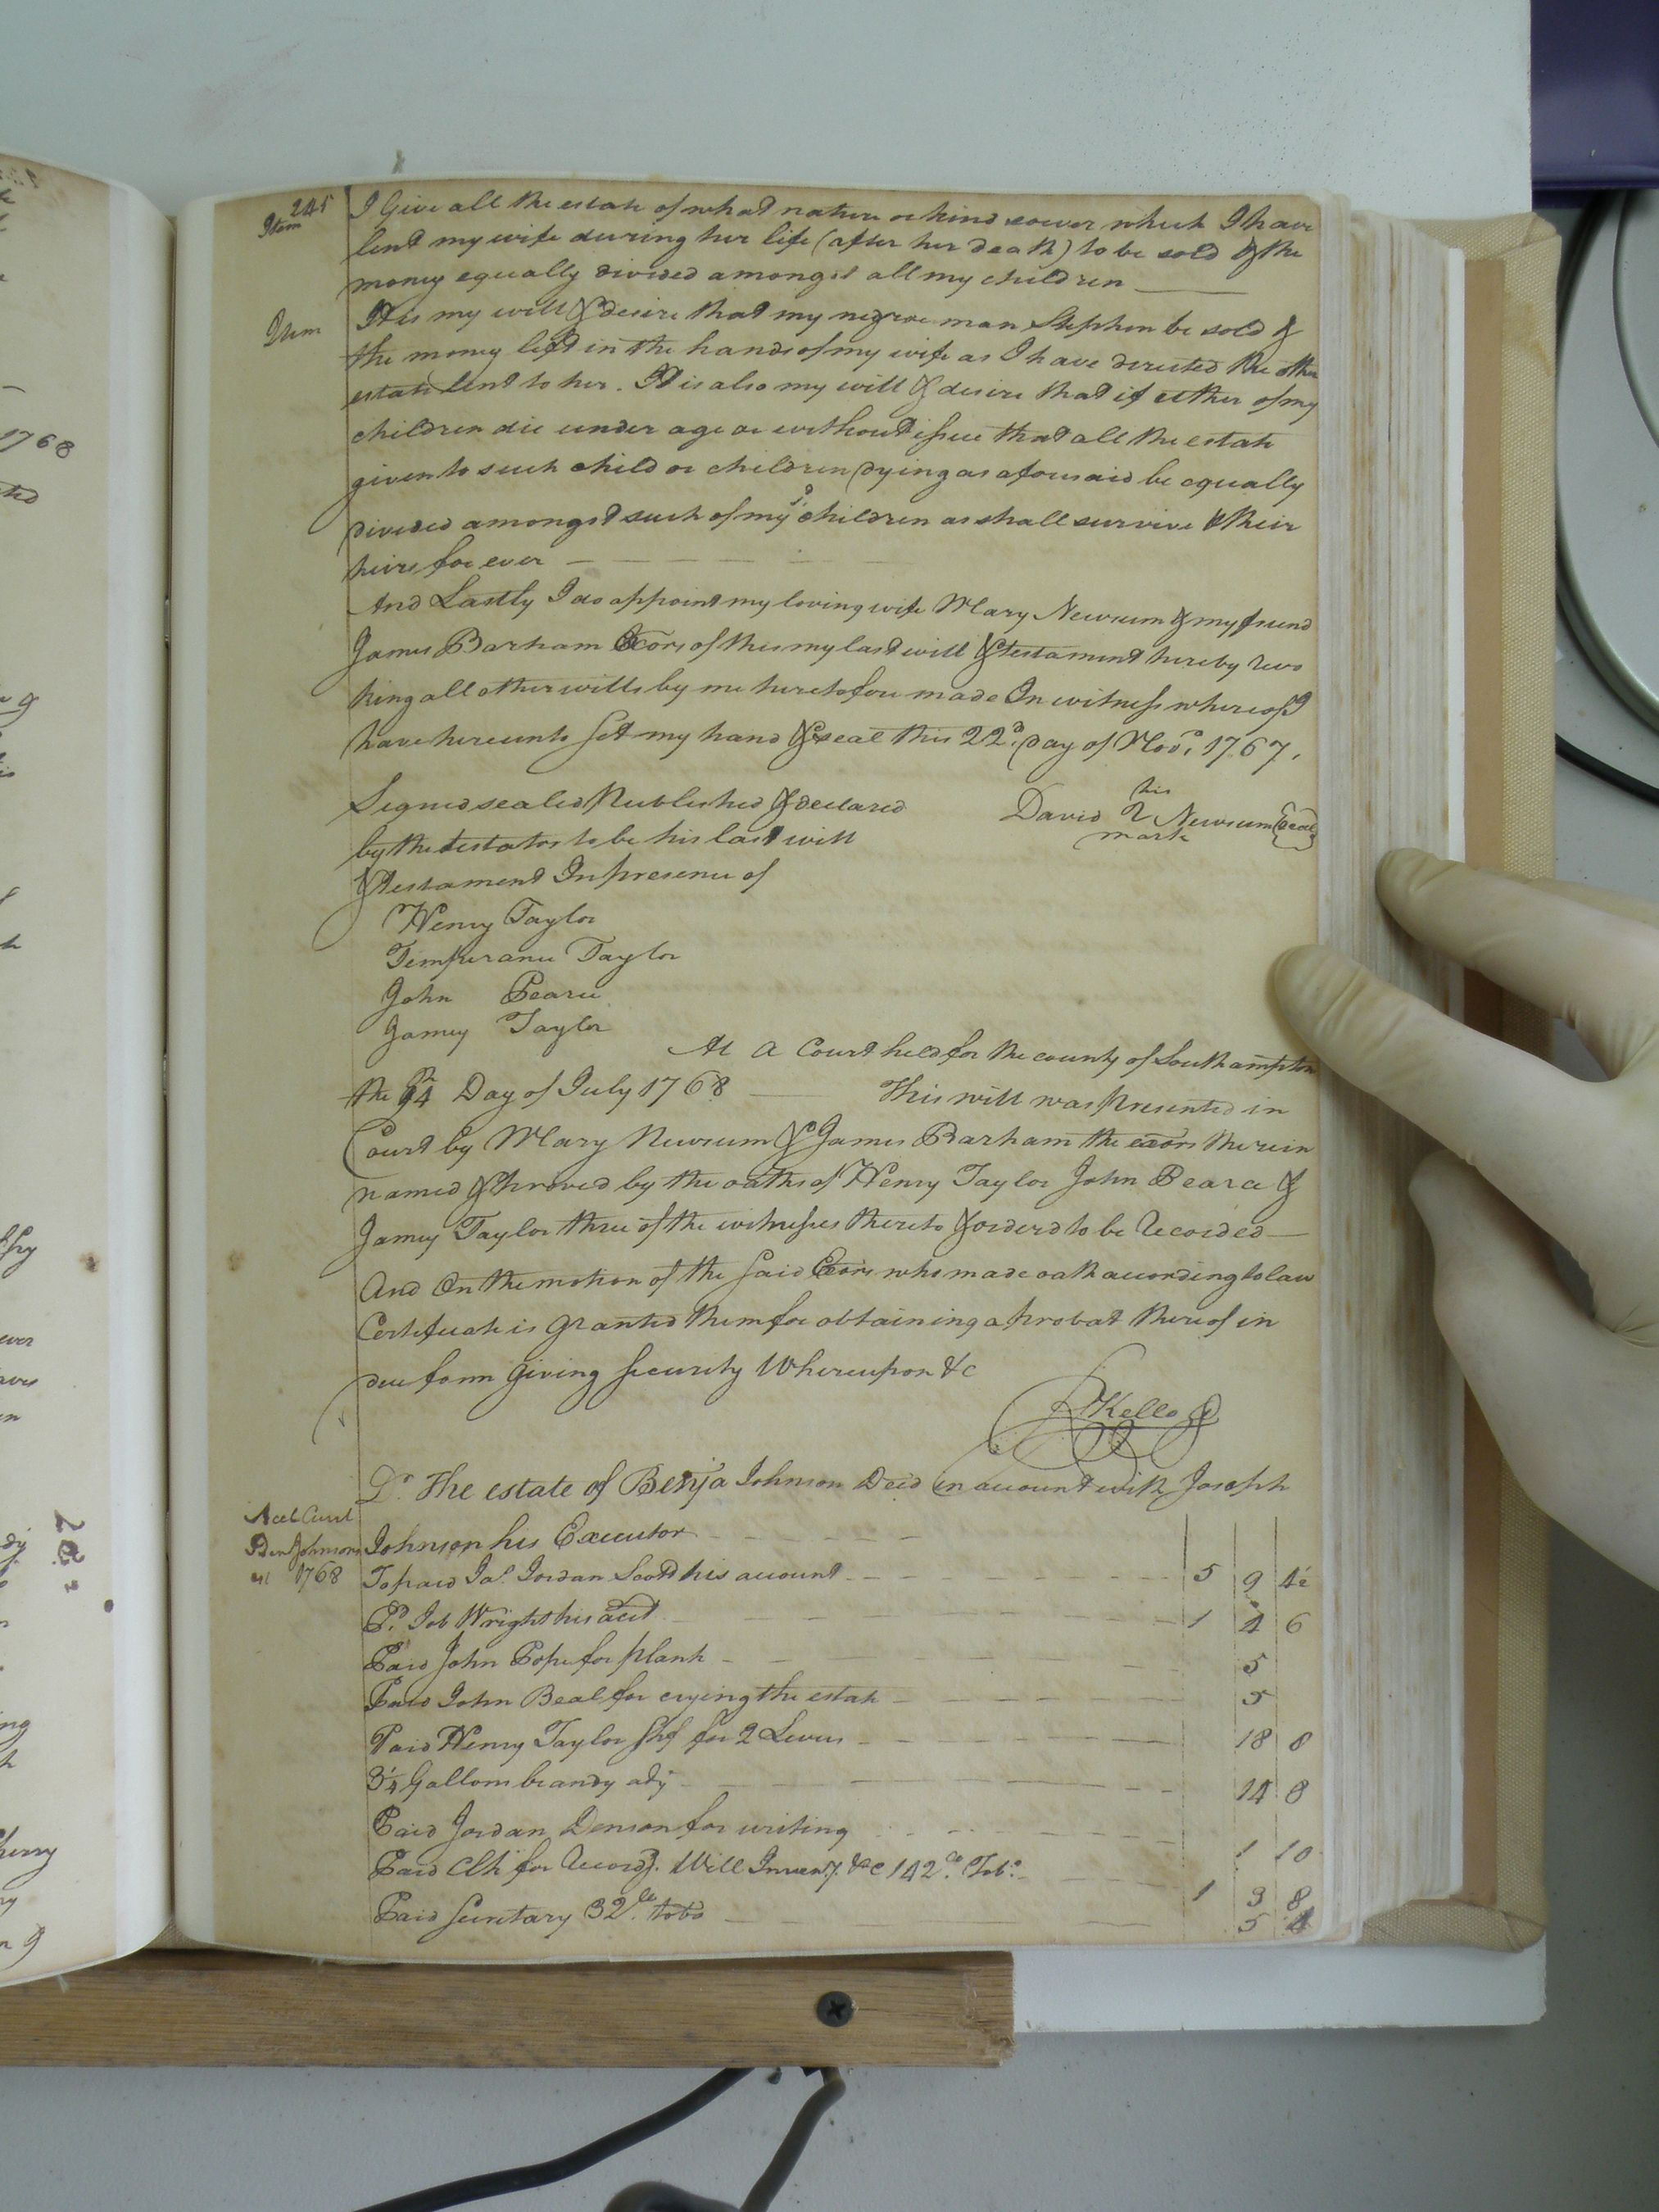 245
Item I Give all the estate of what nature or kind soever which I have
lent my wife during her life (after her death) to be sold & the
money equally divided amongst all my children
Item It is my will & desire that my negroe man Stephen be sold &
the money left in the hands of my wife as I have directed the other
estate lent to her. It is also my will & desire that if either of my
children die under age or without issue that all the estate
given to such child or children dying as aforesaid be equally
divided amongst such of my sd. children as shall survive & their
heirs for ever
And Lastly I do appoint my loving wife Mary Newsum & my friend
James Barham Exors of this my last will & testament hereby revo
king all other wills by me heretofore made In witness whereof I
have hereunto set my hand & seal this 22d. Day of Novr. 1767.
Signed sealed Published & declared
by the testator to be his last will
& testament In presence of
his
David Newsum Seal
mark
Henry Taylor
Temperance Taylor
John Pearce
Jamey Taylor
At a Court held for the county of Southampton
the 14 Day of July 1768 This will was Presented in
Court by Mary Newsum & James Barham the exors therein
named & Proved by the oaths of Henry Taylor John Pearce &
Jamey Taylor three of the witnesses thereto & orderd to be Recorded
And On the motion of the said Exors who made oath according to law
Certificate is Granted them for obtaining a probat thereof in
due form Giving security Whereupon &c
Kello
Dr. The estate of Benja Johnson Decd in account with Joseph
Acct Curt
Ben Johnson
1768
Johnson his Executor
To paid Jas. Jordan Scott his account 5 9
Pd. Job Wright his acct 1 4 6
Paid John Pope for plank 5
Paid John Beal for crying the estate 5
Paid Henry Taylor Shf for 2 Levies 18 8
3¼ Gallons brandy 14 8
Paid Jordan Denson for writing 1 10
Paid Clk for Recordg. Will Inventy. &c 142 lb. Tobo. 1 3 8
Paid Secretary 32 lb. tobo 5 4
1768